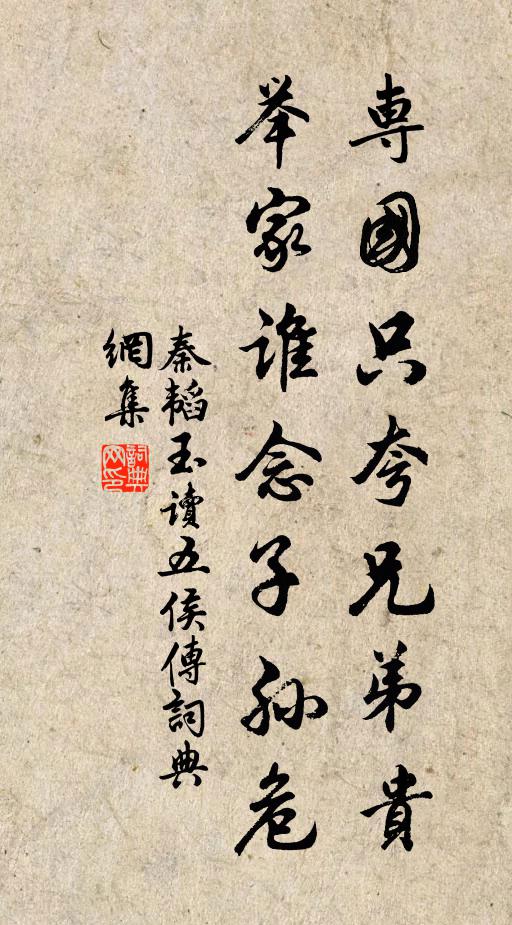 専國只夸兄弟貴
举家谁念子孙危
秦韜玉讀五侯傳詞典
網集
詞典
网印